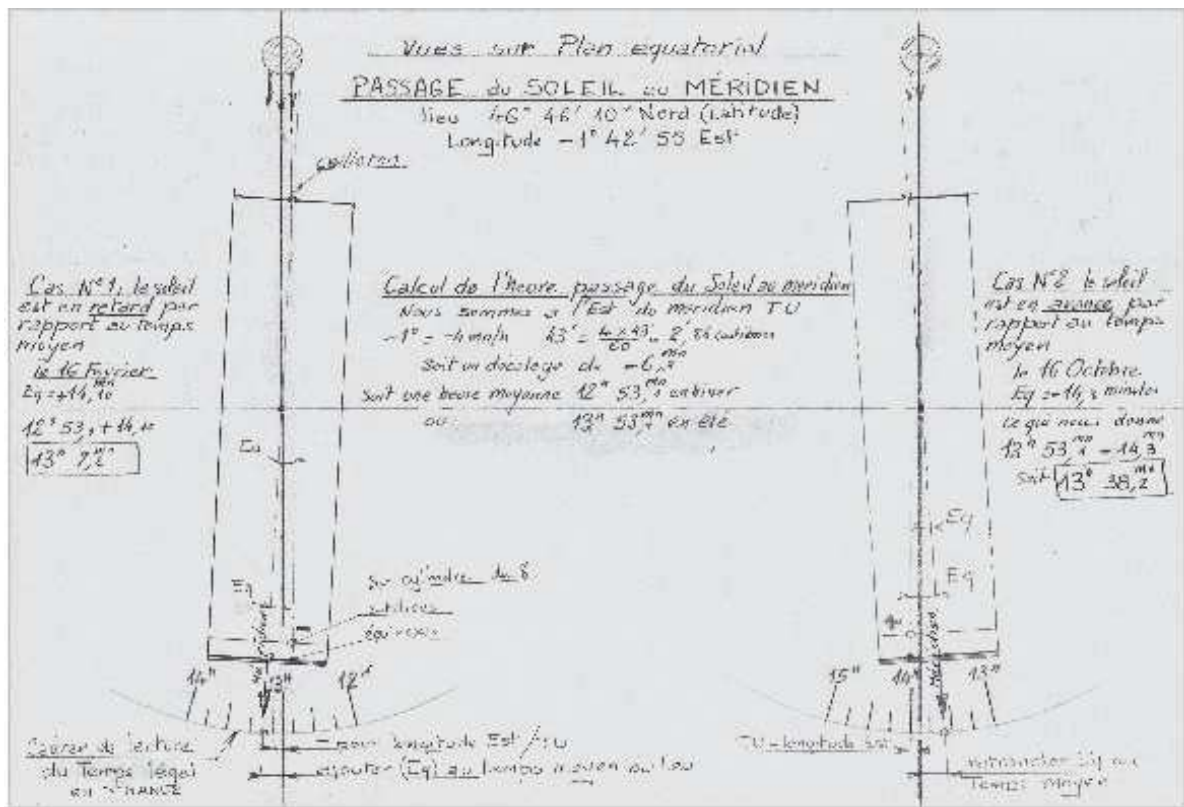 Vues sur Plan équatorial
PASSAGE du SOLEIL au MÉRIDIEN
lieu 46° 46' 10" Nord (Latitude)
Longitude -1° 42' 55 Est
Cas N° 1, le soleil
est en retard par
rapport au temps
moyen
le 16 Février
Eq = +14,
12H 53, + 14,
13H 7,2mn
Calcul de l'heure passage du Soleil au méridien
Nous sommes à l'Est du méridien TU
-1° = -4 m/n 43' = 4 x 43 / 60 = 2,
Soit un décalage de -6,
soit une heure moyenne 12H 53, mn en hiver
ou 13H 53, mn en été
Cas N° 2 le soleil
est en avance par
rapport au temps
moyen
le 16 Octobre
Eq = -14,3 minutes
ce qui nous donne
13H 53, mn - 14,3 mn
soit 13H 38,2 mn
Eq
Eq
Eq
Eq
Sur cylindre du 8
solstices
équinoxe
Méridien
14H
13H
12H
15H
14H
13H
Cadran de lecture
du Temps légal
en FRANCE
- pour longitude Est/TU
ajouter (Eq) au temps moyen
TU - longitude Est
retrancher Eq au
Temps moyen